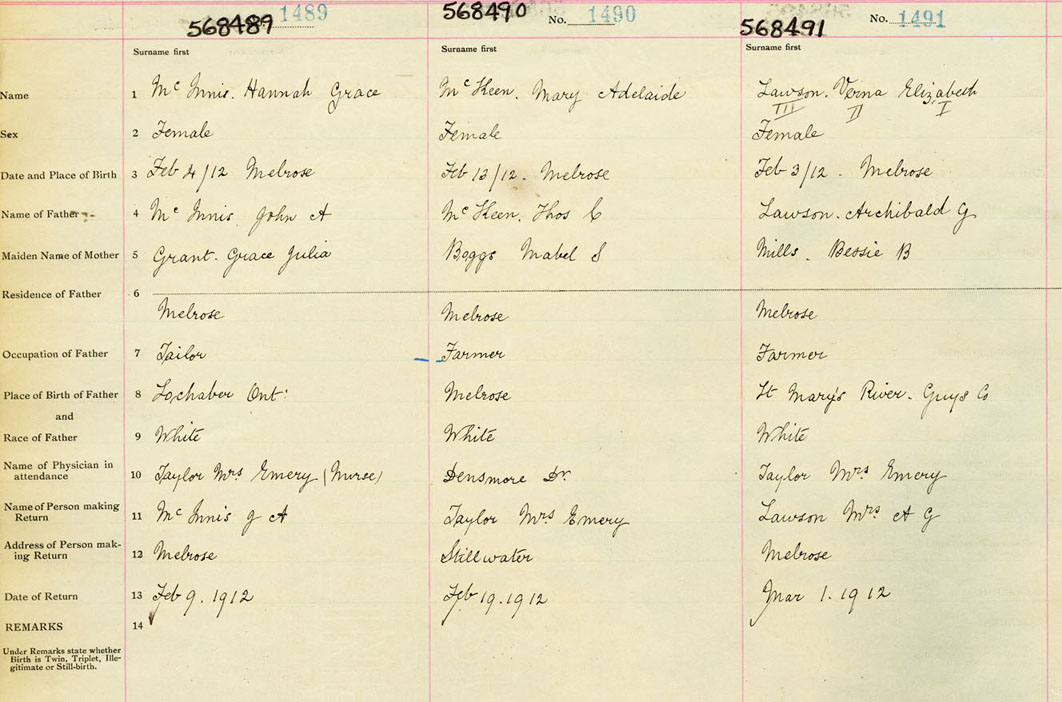 568489 1489 568490 No. 1490 568491 No. 1491
Surname first Surname first Surname first
Name 1 Mc Innis. Hannah Grace Mc Keen. Mary Adelaide Lawson. Verna Elizabeth
III II I
Sex 2 Female Female Female
Date and Place of Birth 3 Feb 4/12 Melrose Feb 13/12. Melrose Feb 3/12. Melrose
Name of Father 4 Mc Innis John A Mc Keen. Thos C Lawson. Archibald G
Maiden Name of Mother 5 Grant. Grace Julia Boggs Mabel S Mills. Bessie B
Residence of Father 6
Melrose Melrose Melrose
Occupation of Father 7 Tailor Farmer Farmer
Place of Birth of Father 8 Lochaber Ont: Melrose St Mary's River. Guys Co
and
Race of Father 9 White White White
Name of Physician in
attendance 10 Taylor Mrs Emery (Nurse) Densmore Dr. Taylor Mrs Emery
Name of Person making
Return 11 Mc Innis J A Taylor Mrs Emery Lawson Mrs A G
Address of Person mak-
ing Return 12 Melrose Stillwater Melrose
Date of Return 13 Feb 9. 1912 Feb 19. 1912 Mar 1. 1912
REMARKS 14
Under Remarks state whether
Birth is Twin, Triplet, Ille-
gitimate or Still-birth.